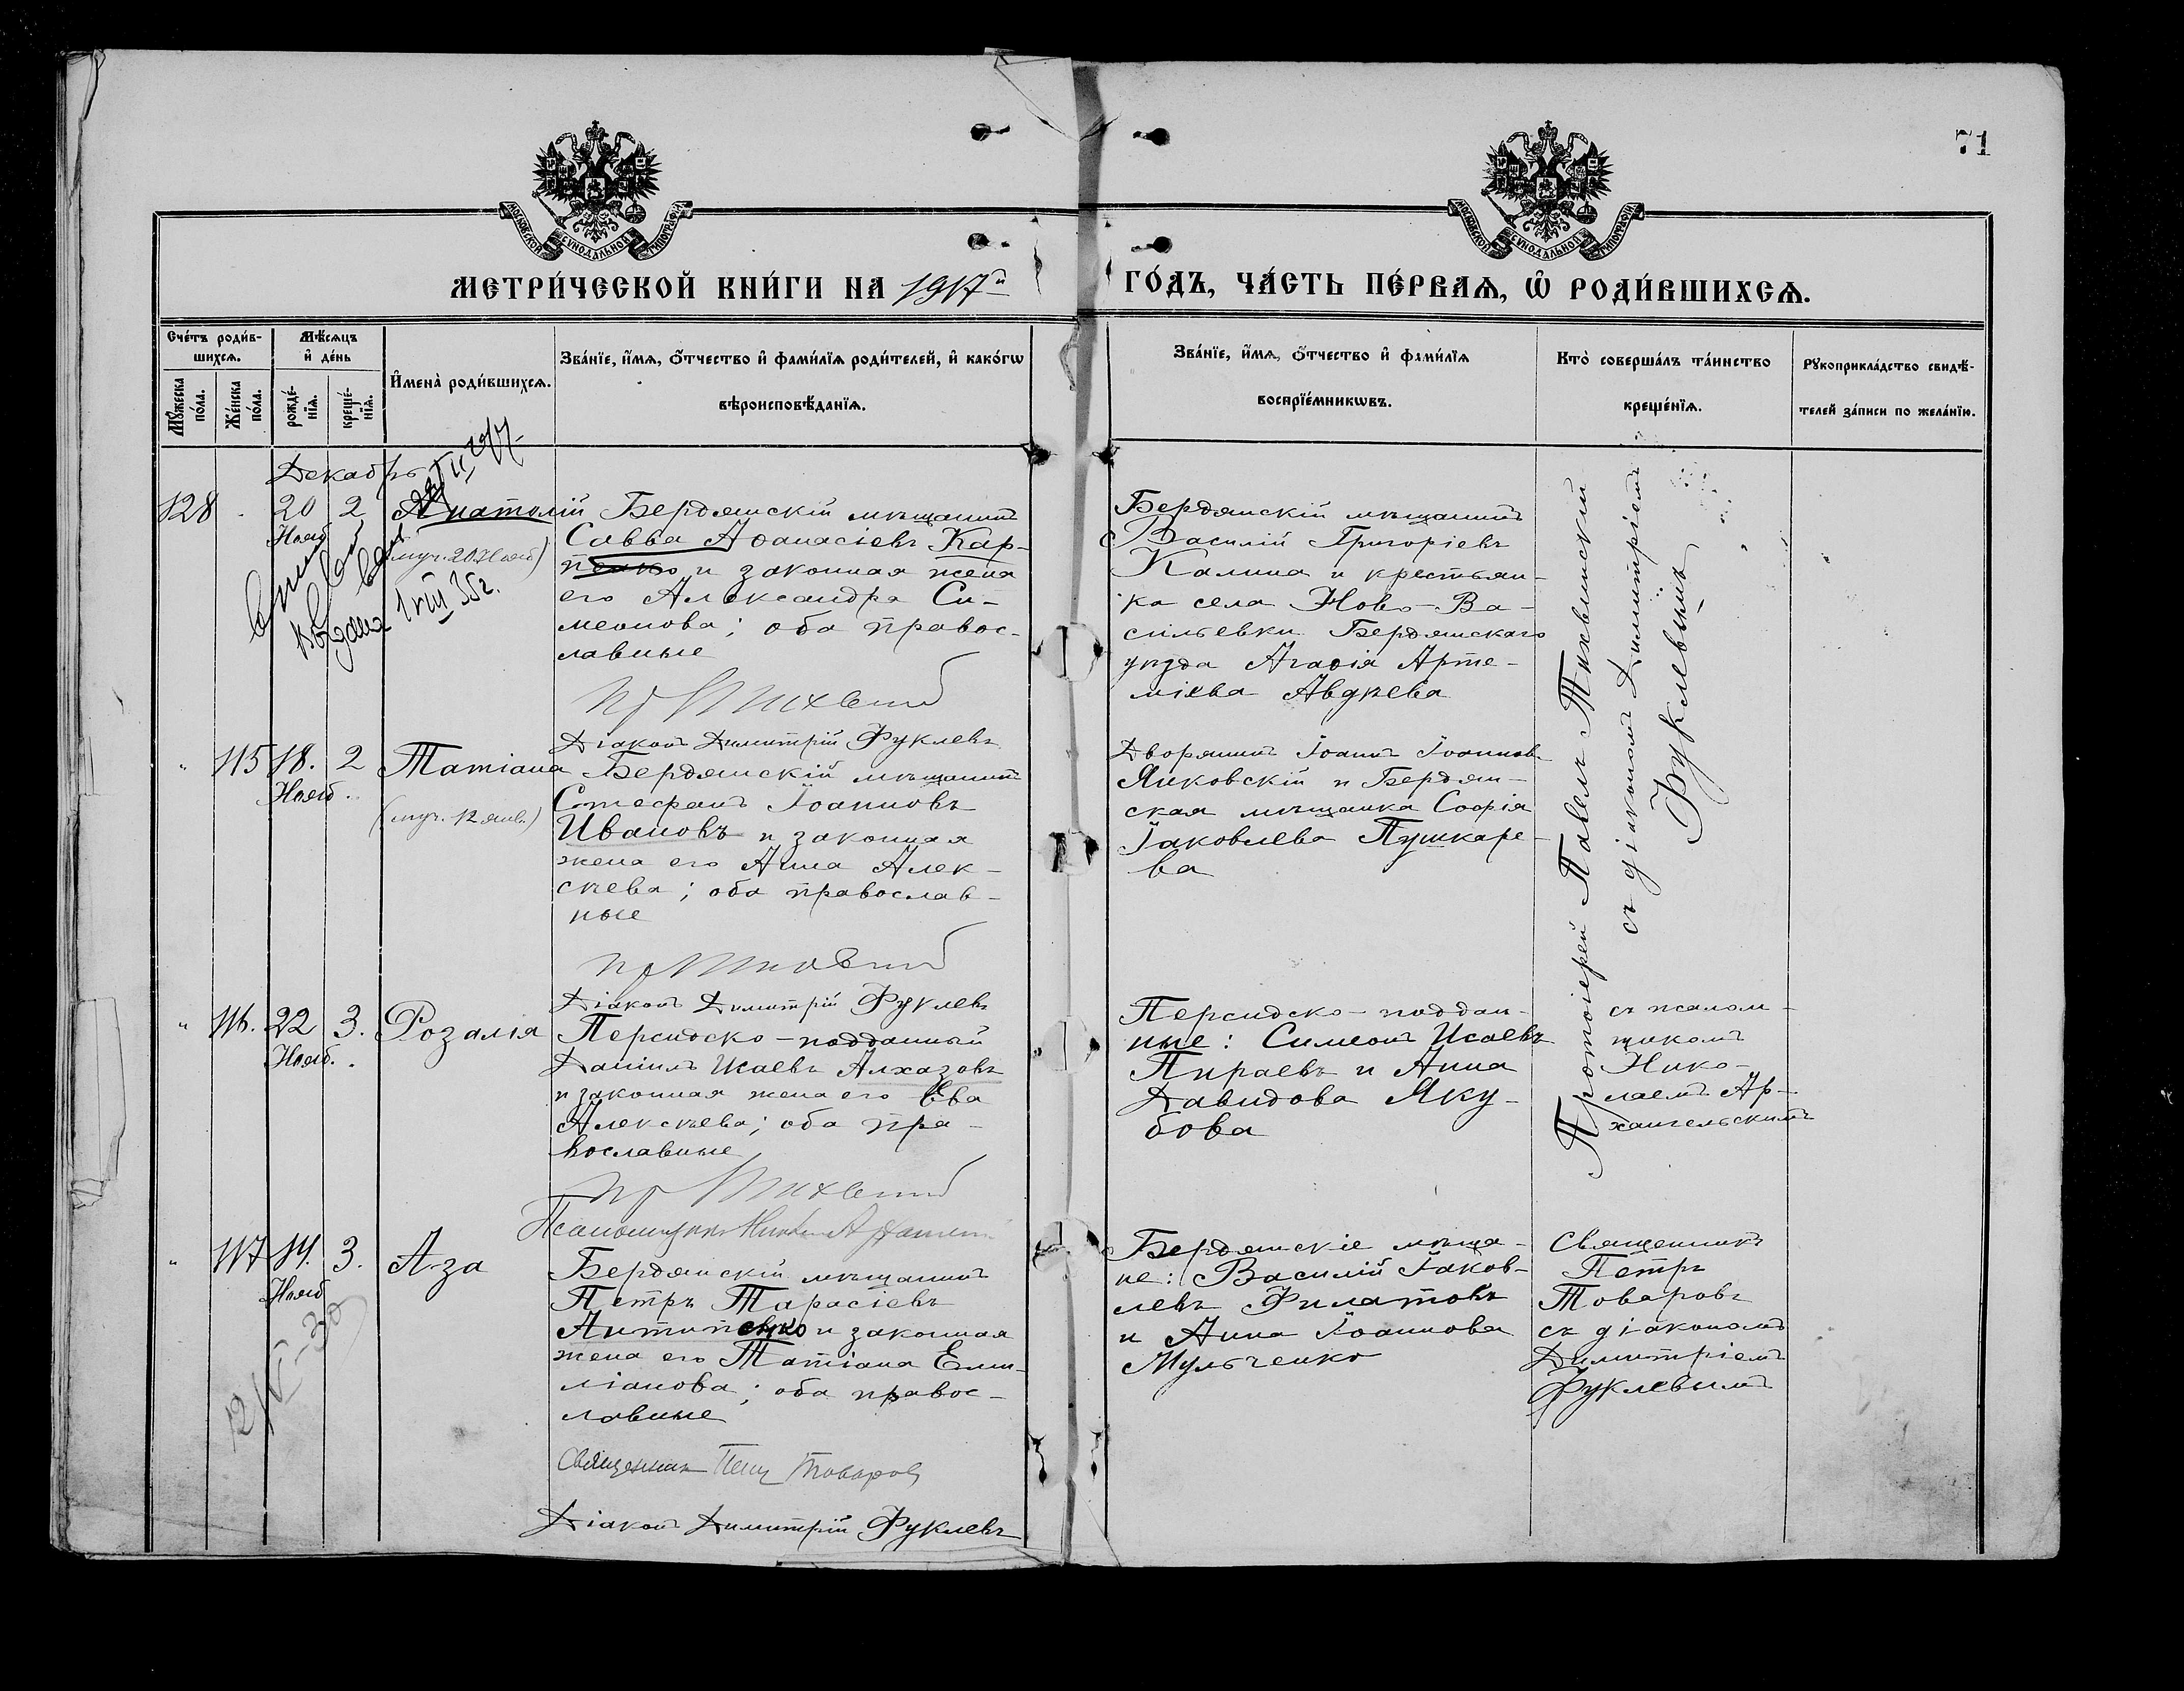 71
МОСКОВСКОЙ СУНОДАЛЬНОЙ ТИПОГРАФІИ
МОСКОВСКОЙ СУНОДАЛЬНОЙ ТИПОГРАФІИ
МЕТРИ́ЧЕСКОЙ КНИ́ГИ НА 1917й ГО́ДЪ, ЧА́СТЬ ПЕ́РВАѦ, Ѡ РОДИ́ВШИХСѦ.
Сче́тъ роди́в-
шихсѧ.
Мѣ́сѧцъ
и҆ де́нь
Мꙋ́жеска по́ла.
Же́нска по́ла.
рожде́-нїѧ.
креще́-нїѧ.
И҆мена̀ роди́вшихсѧ.
Зва́нїе, и҆́мѧ, ѻ҆́тчество и҆ фами́лїѧ роди́телей, и҆ како́гѡ
вѣроисповѣ́данїѧ.
Зва́нїе, и҆́мѧ, ѻ҆́тчество и҆ фами́лїѧ
воспрїе́мникѡвъ.
Кто̀ соверша́лъ та́инство
креще́нїѧ.
Рꙋкоприкла́дство свидѣ́-
телей за́писи по жела́нїю.
Декабрь
128 20 Нояб 2 Анатолій
(муч. 20 Нояб)
Выдана 1 VIII 35 г.
Бердянскій мѣщанинъ
Савва Аѳанасіевъ Кар-
пенко и законная жена
его Александра Си-
меонова; оба правос-
лавные
Діаконъ Димитрій Фуклевъ
Бердянскій мѣщанинъ
Василій Григоріевъ
Калина и крестьян-
ка села Ново-Ва-
сильевки Бердянскаго
уѣзда Агаѳія Арте-
міева Авдѣева
Протоіерей Павелъ Тихвинскій
съ діакономъ Димитріемъ
Фуклевымъ
" 115 18. Нояб. 2 Татіана
(муч. 12 янв.)
Бердянскій мѣщанинъ
Стефанъ Іоанновъ
Ивановъ и законная
жена его Анна Алек-
сѣева; оба православ-
ные
Діаконъ Димитрій Фуклевъ
Дворянинъ Іоаннъ Іоаннов.
Янковскій и Бердян-
ская мѣщанка Софія
Іаковлева Пушкаре-
ва
" 116. 22 Нояб. 3. Розалія
Персидско-подданный
Даніилъ Исаевъ Алхазовъ
и законная жена его Ева
Алексѣева; оба пра-
вославные
Персидско-поддан-
ные: Симеонъ Исаевъ
Пираевъ и Анна
Давидова Яку-
бова
съ псалом-
щикомъ
Нико-
лаемъ Ар-
хангельскимъ
" 117 14. Нояб 3. Аза
Бердянскій мѣщанинъ
Петръ Тарасіевъ
Антипенко и законная
жена его Татіана Еми-
ліанова; оба правос-
лавные
Священникъ Петръ Товаровъ
Діаконъ Димитрій Фуклевъ
Бердянскіе мѣща-
не: Василій Іаков-
левъ Филатовъ
и Анна Іоаннова
Мульченко
Священникъ
Петръ
Товаровъ
съ діакономъ
Димитріемъ
Фуклевымъ